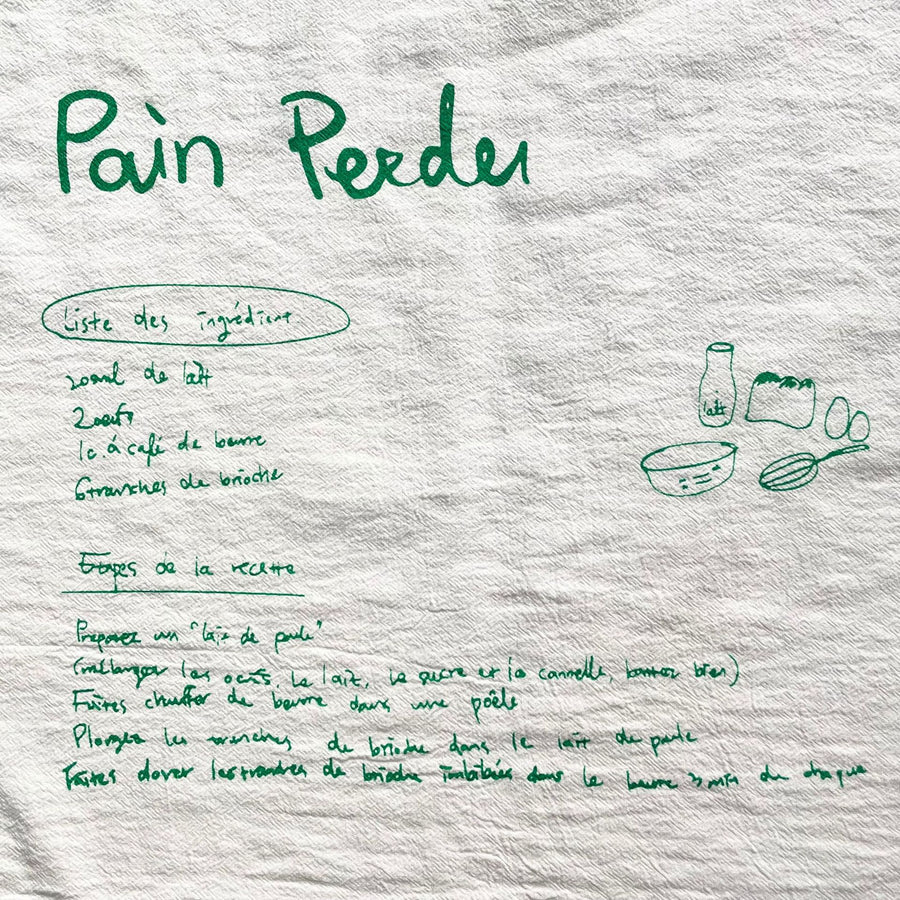 Pain Perdu
Liste des ingrédient
200ml de lait
2oeufs
1c à café de beurre
6tranches de brioche
lait
Etapes de la recette
Preparez un "lait de poule"
(mélanger les oeufs, le lait, le sucre et la cannelle, battez bien)
Faites chauffer de beurre dans une poêle
Plongez les trenches de brioche dans le lait de poule
Faites dorer les tranches de brioche imbibées dans le beurre 3 min de chaque